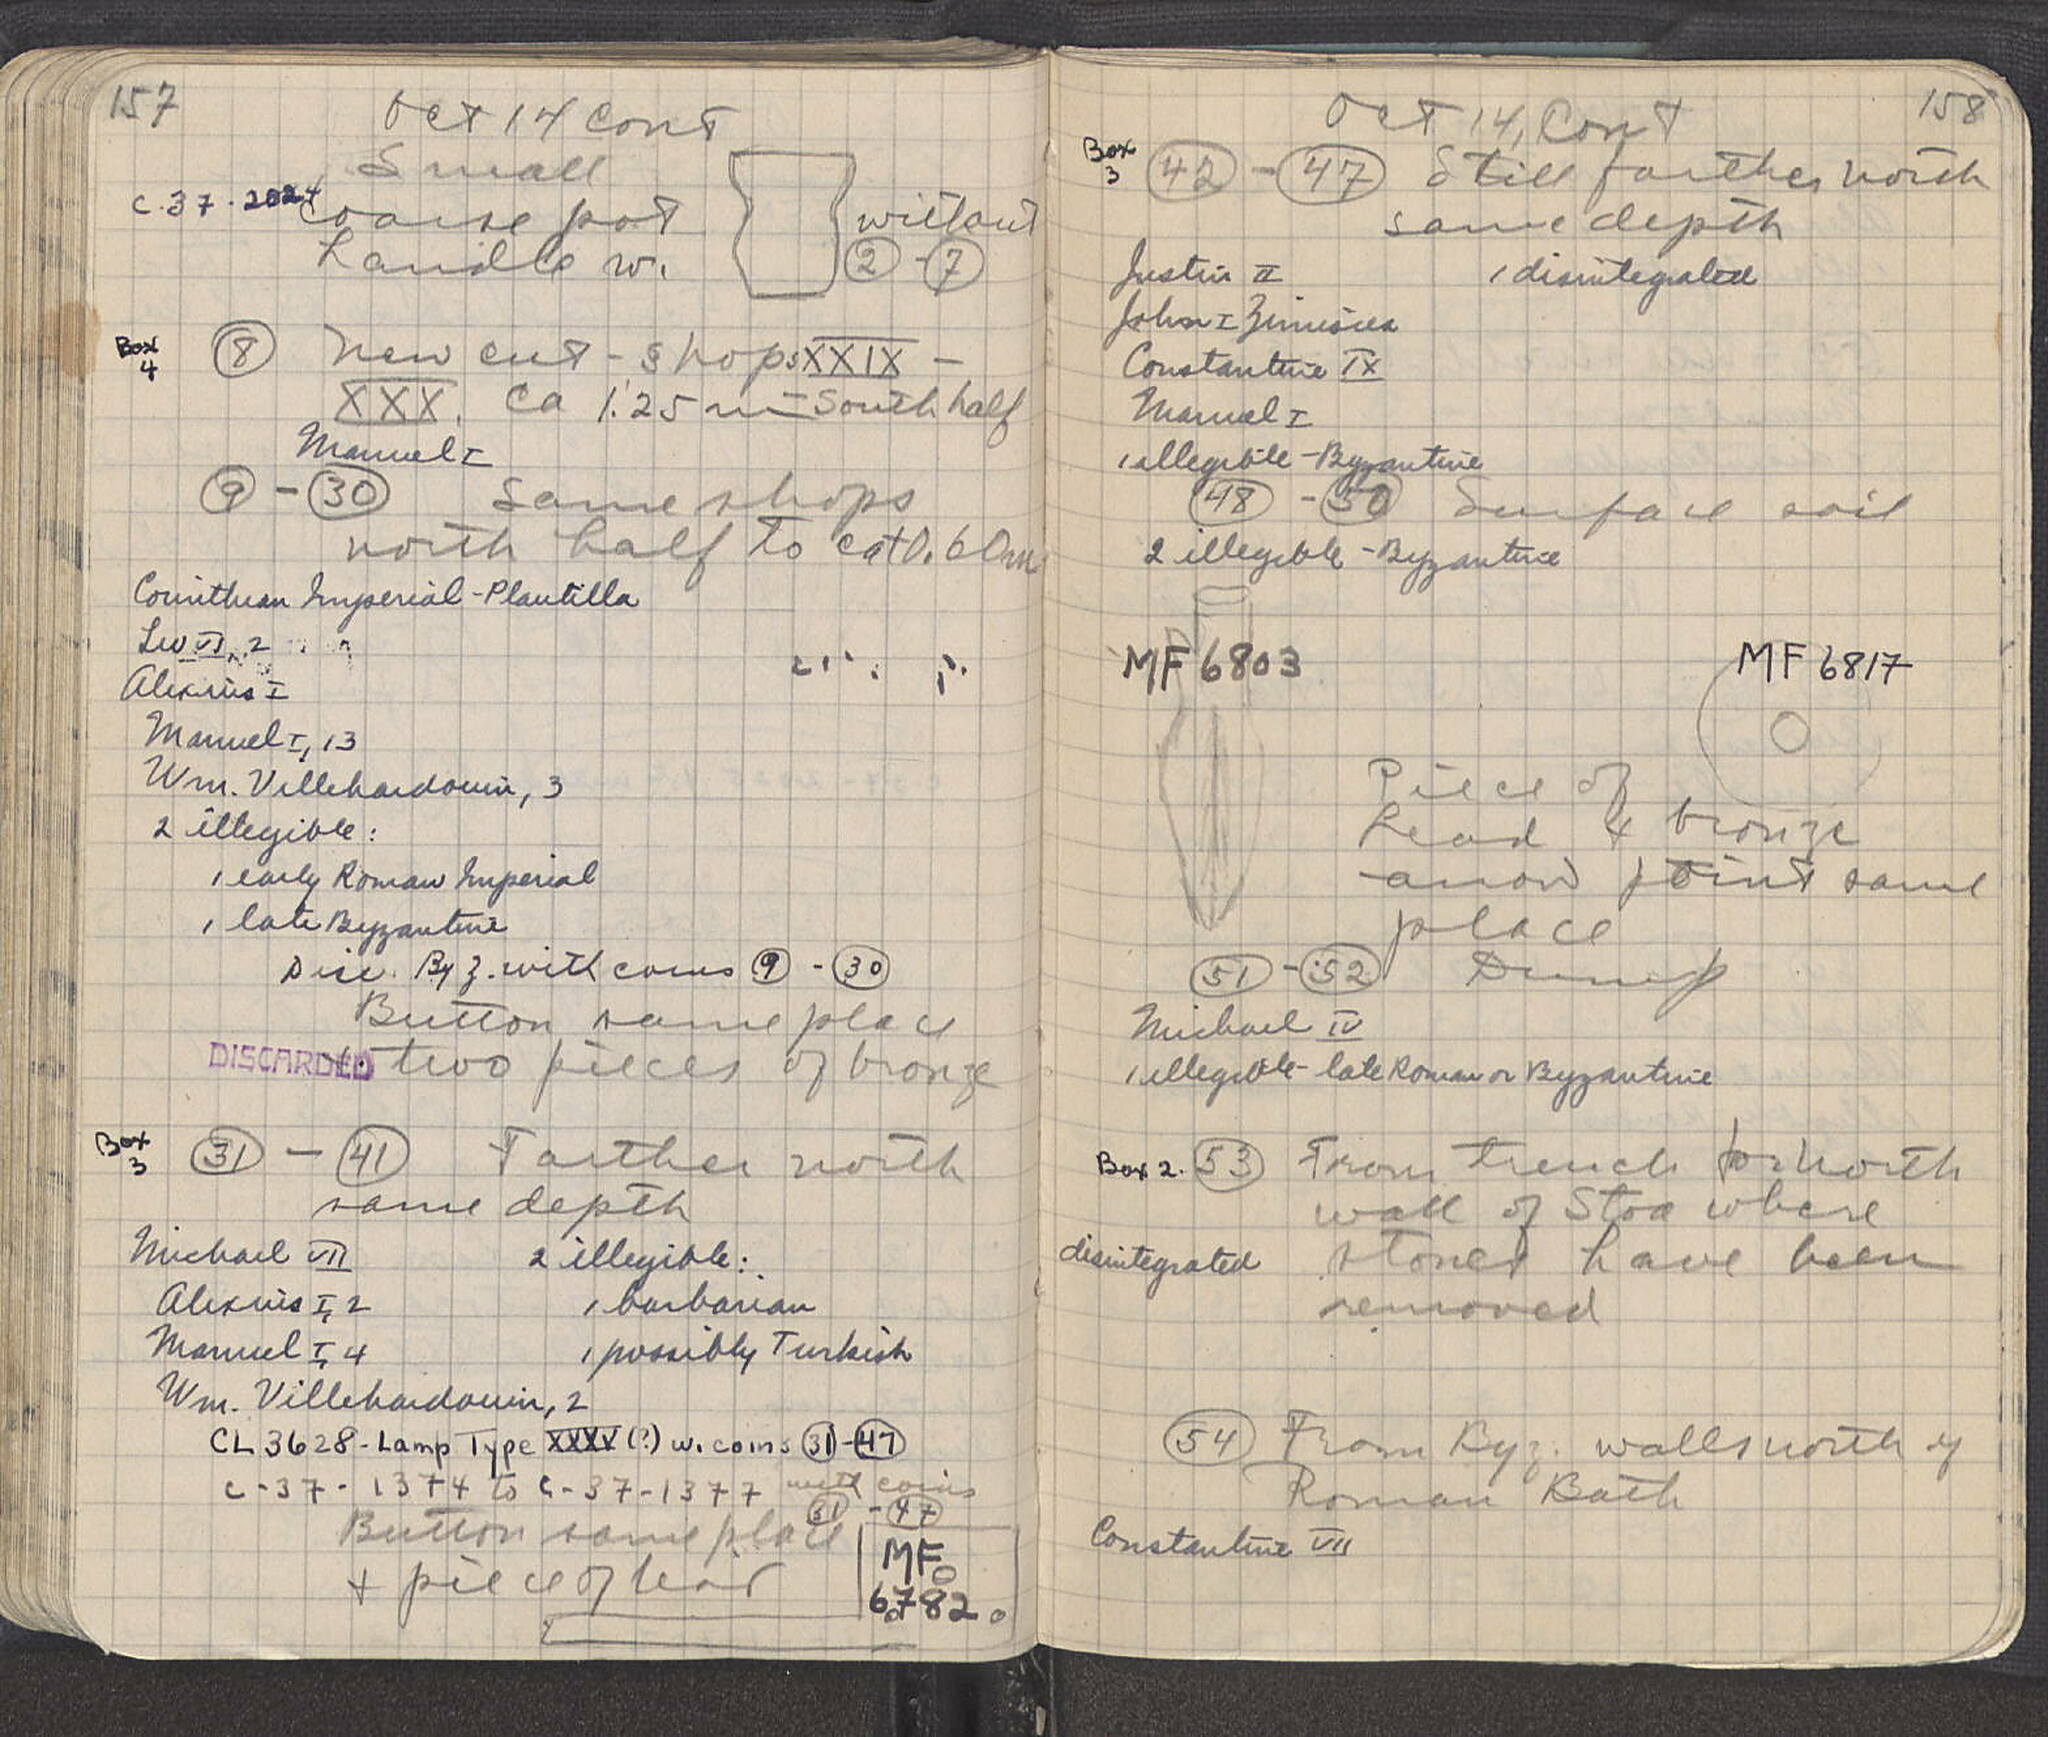 157
Oct 14 Cont
Small
C.37.2024 coarse pot without
handle w. 2 - 7
Box 4 8 New cut - shops XXIX -
XXX. Ca 1.25 m - South half
Manuel I
9 - 30 Same shops
north half to ca + 0.60m
Corinthian Imperial - Plautilla
Leo VI, 2
Alexius I
Manuel I, 13
Wm. Villehardouin, 3
2 illegible:
1 early Roman Imperial
1 late Byzantine
Disc. Byz. with coins 9 - 30
Button same place
DISCARDED + two pieces of bronze
Box 3 31 - 41 Farther north
same depth
Michael VII 2 illegible:
Alexius I, 2 1 barbarian
Manuel I, 4 1 possibly Turkish
Wm. Villehardouin, 2
CL 3628 - Lamp Type XXXV (?) w. coins 31 - 47
C-37-1374 to C-37-1377 with coins
31 - 47
Button same place
+ piece of lead
MF
6782
158
Oct 14, Cont
Box 3 42 - 47 Still farther north
same depth
Justin II 1 disintegrated
John I Zimisces
Constantine IX
Manuel I
1 illegible - Byzantine
48 - 50 Surface soil
2 illegible - Byzantine
MF 6803 MF 6817
Piece of
lead & bronze
arrow point same
place
51 - 52 Dump
Michael IV
1 illegible - late Roman or Byzantine
Box 2. 53 From trench for North
wall of Stoa where
disintegrated stones have been
removed
54 From Byz. walls north of
Roman Bath
Constantine VII